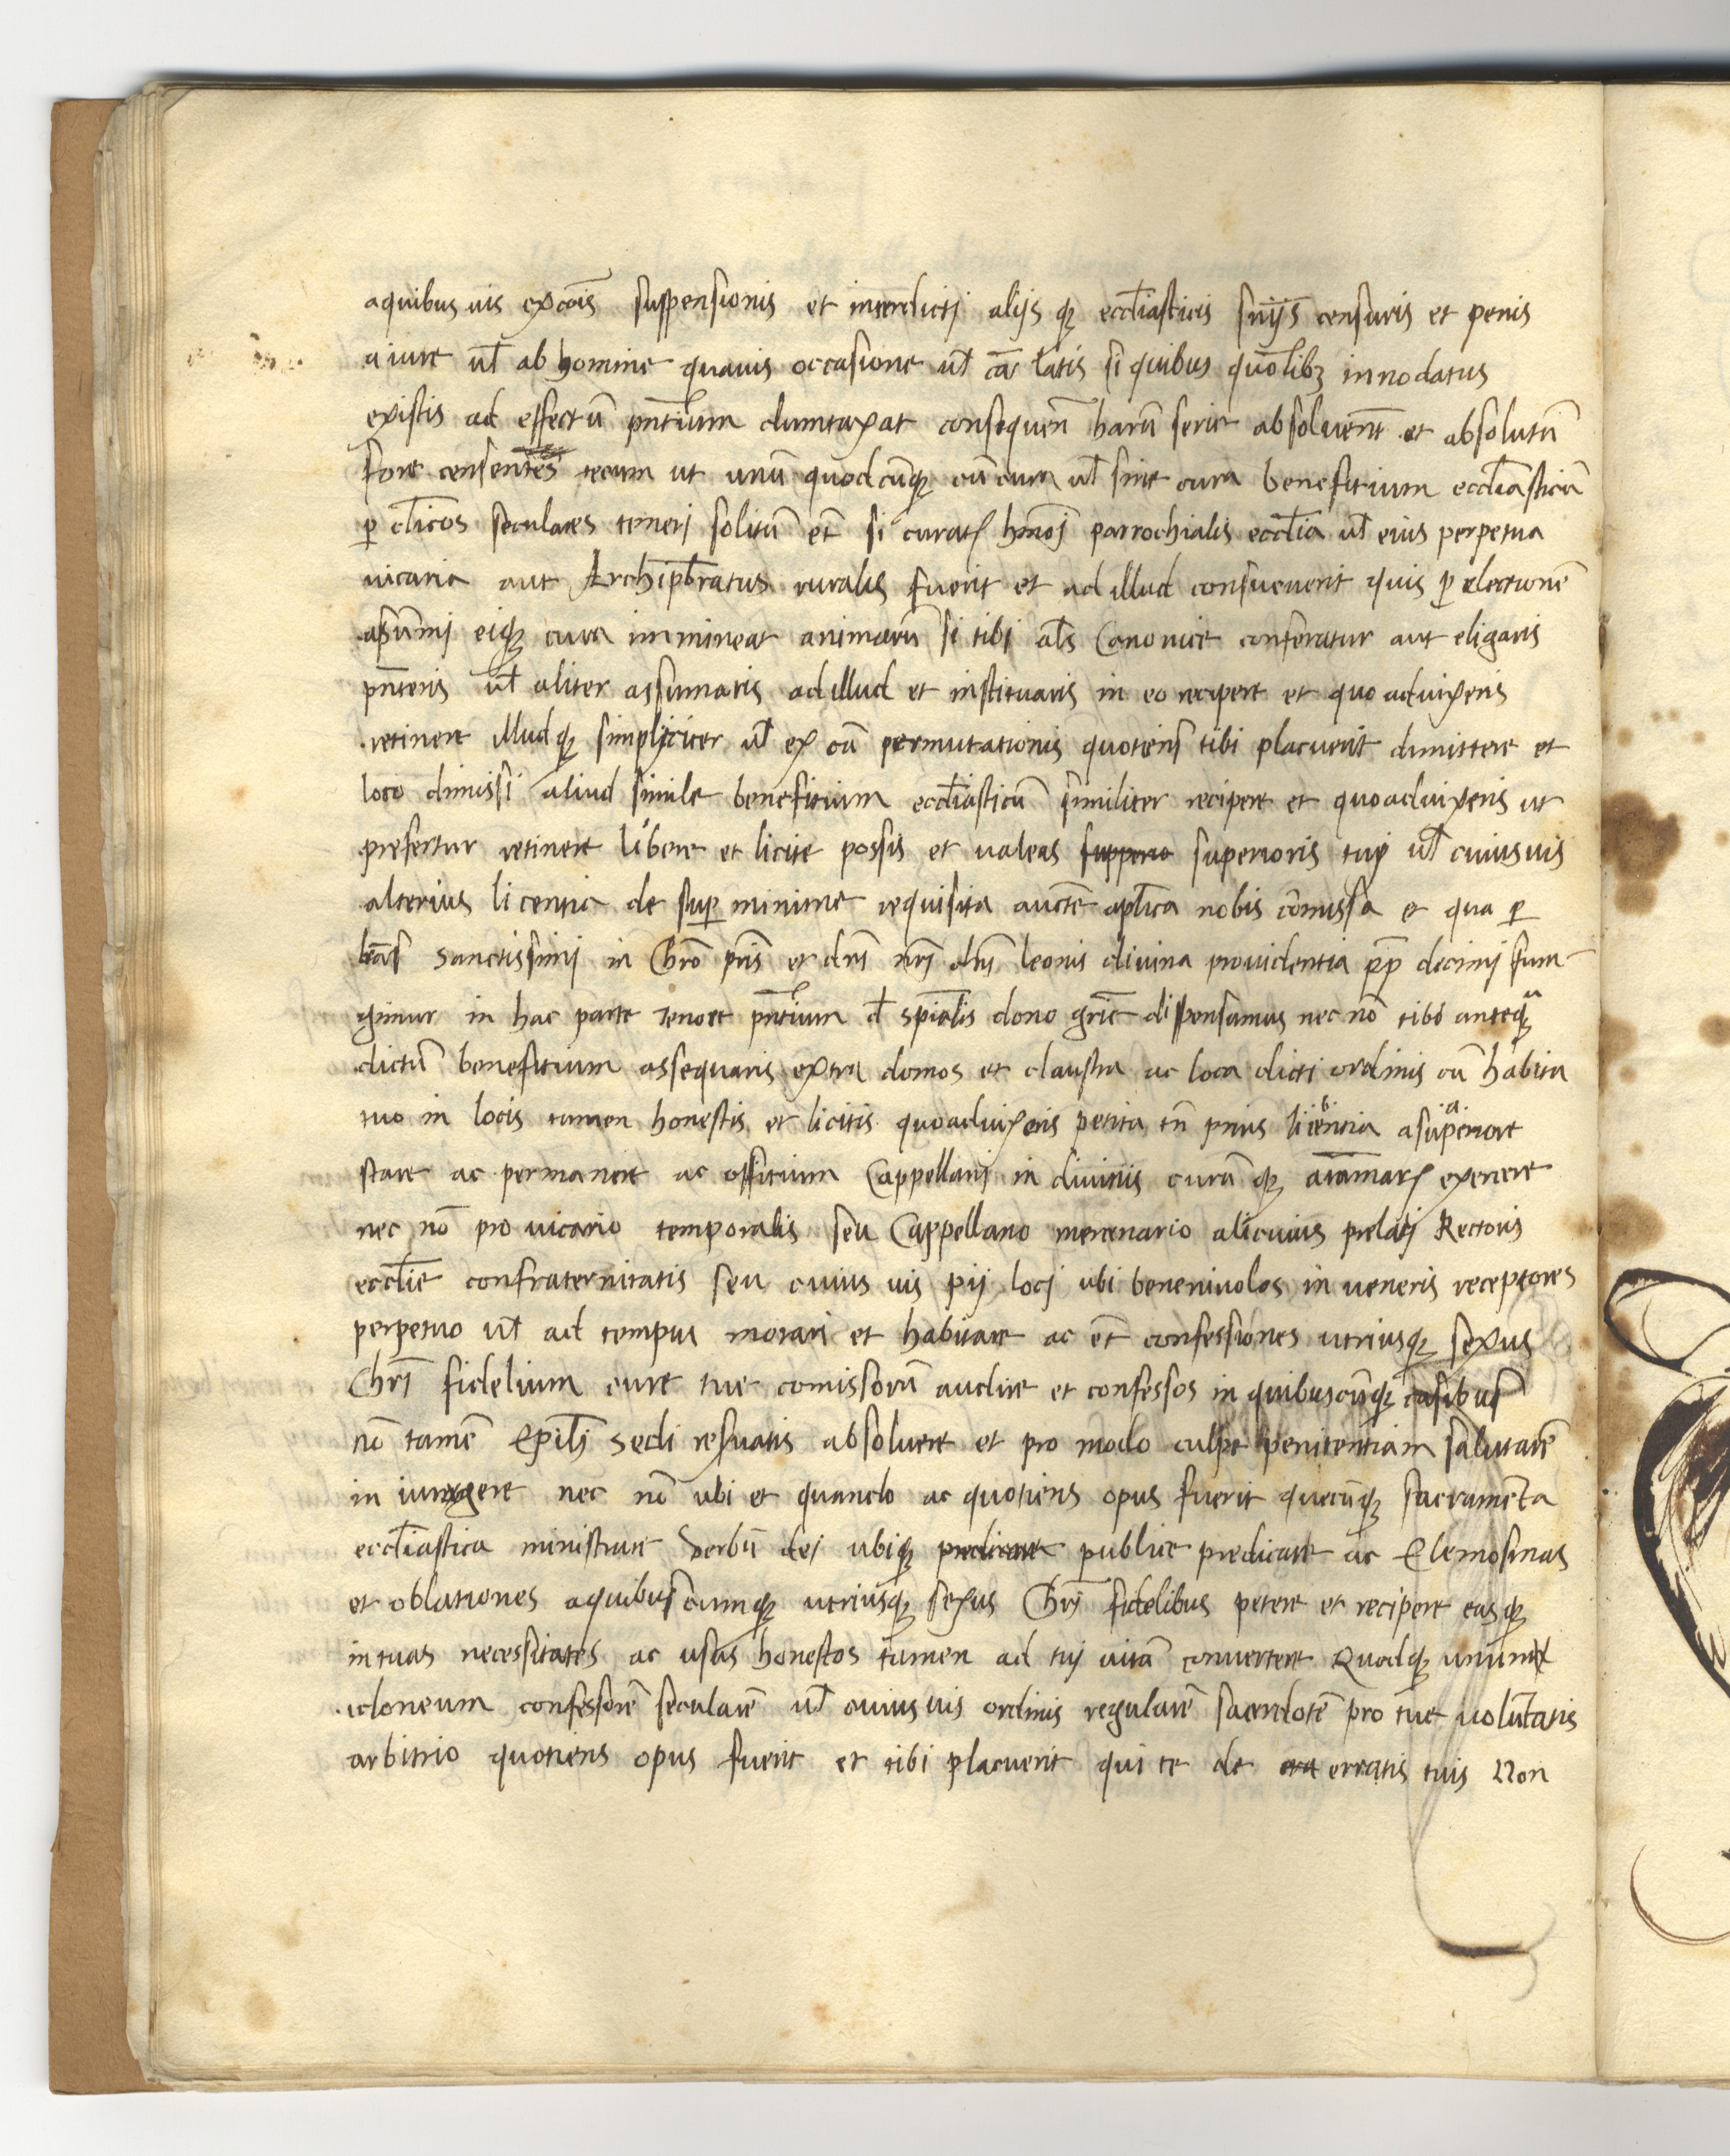 aquibus uis exco͠is suspensionis et interdictj alijs qȝ eccl̄iasticis sn̄ijs censuris et penis
a iure ul̄ ab homine quauis occasione ul̄ cā latis si quibus quōlibȝ innodatus
existis ad effectū pn̄tium dumtaxat consequen̄ harū serie absoluen̄t et absolutū
fore censentes tecum ut unū quodcūqȝ cū cura ul̄ sine cura benefitium eccl̄iasticū
ꝑ cl̄icos seculares tenerj solitū et̄ si curatꝝ hm̄oj parrochialis eccl̄ia ul̄ eius perpetua
uicaria aut Archip̄bratus ruralis fuerit et ad illud consueuerit quis ꝑ electionē
asūmj eiqȝ cura immineat animarū si tibi al̄s Canonice conferatur aut eligaris
pn̄teris ul̄ aliter assumaris ad illud et instituaris in eo recipere et quo aduixeris
retinere illudqȝ simpliciter ul̄ ex cā permutationis quotiens tibi placuerit dimittere et
loco dimissi aliud simile benefitium eccl̄iasticū similiter recipere et quoaduixeris ut
prefertur retinere libere et licite possis et ualeas superioris tuj ul̄ cuiusuis
alterius licentia de suꝑ minime requisita auctē apl̄ica nobis cōmissa et qua ꝑ
lrās sanctissimj in Chrō pr̄is et dn̄i nr̄j dn̄i leonis diuina prouidentia pp̄ decimj fun
gimur in hac parte tenore pn̄tium d̄ sp̄ialis dono grē dispensamus nec nō tibi anteqȝ
dictū benefitium assequaris extra domos et claustra ac loca dicti ordinis cū habitu
tuo in locis tamen honestis et licitis quoaduixeris petita tn̄ prius licentia a superiore
stare ac permanere ac offitium Cappellanj in diuinis curā qȝ aīamarꝝ exercere
nec nō pro uicario temporalis seu Cappellano mercenario alicuius prelatj Rectoris
eccl̄ie confraternitatis seu cuius uis pij locj ubi beneniuolos in ueneris receptores
perpetuo ul̄ ad tempus morari et habitare ac et̄ confessiones utriusqȝ sexus
Chrī fidelium cure tue comissorū audire et confessos in quibuscūqȝ casibus
nō tamē Ap̄lj Sedi resuatis absoluere et pro modo culpe penitentiam salutarē
in iungere nec nō ubi et quando ac quotiens opus fuerit quecūqȝ sacramēta
eccl̄iastica ministrare Verbū dej ubiqȝ predicare publice predicare ac Elemosinas
et oblationes aquibuscumqȝ utriusqȝ sexus Chrī fidelibus petere et recipere easqȝ
in tuas necessitates ac usus honestos tamen ad tuj uitā conuertere Quodqȝ unum
idoneum confessorē secularē ul̄ cuiusuis ordinis regularē sacerdotē pro tue volūtatis
arbitrio quotiens opus fuerit et tibi placuerit qui te de erratis tuis Non